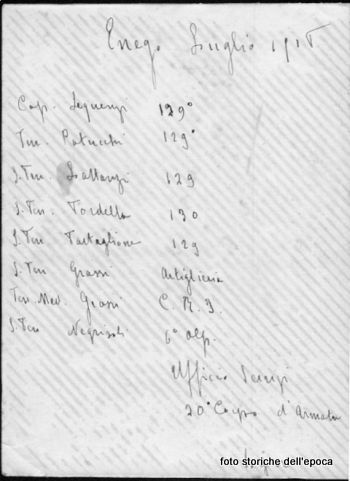 Enego Luglio 1918
Cap. Sequenzi 129°
Ten. Patucchi 129°
S. Ten. Lattanzi 129
S. Ten. Tordella 130
S. Ten. Tartaglione 129
S. Ten Grassi Artiglieria
Ten. Med. Grossi C. R. I.
S. Ten Negrisoli 6° Alp.
Ufficio Servizi
20° Corpo d'Armata
foto storiche dell'epoca